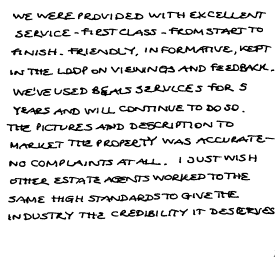 WE WERE PROVIDED WITH EXCELLENT
SERVICE - FIRST CLASS - FROM START TO
FINISH. FRIENDLY, INFORMATIVE, KEPT
IN THE LOOP ON VIEWINGS AND FEEDBACK.
WE'VE USED BEALS SERVICES FOR 5
YEARS AND WILL CONTINUE TO DO SO.
THE PICTURES AND DESCRIPTION TO
MARKET THE PROPERTY WAS ACCURATE -
NO COMPLAINTS AT ALL. I JUST WISH
OTHER ESTATE AGENTS WORKED TO THE
SAME HIGH STANDARDS TO GIVE THE
INDUSTRY THE CREDIBILITY IT DESERVES